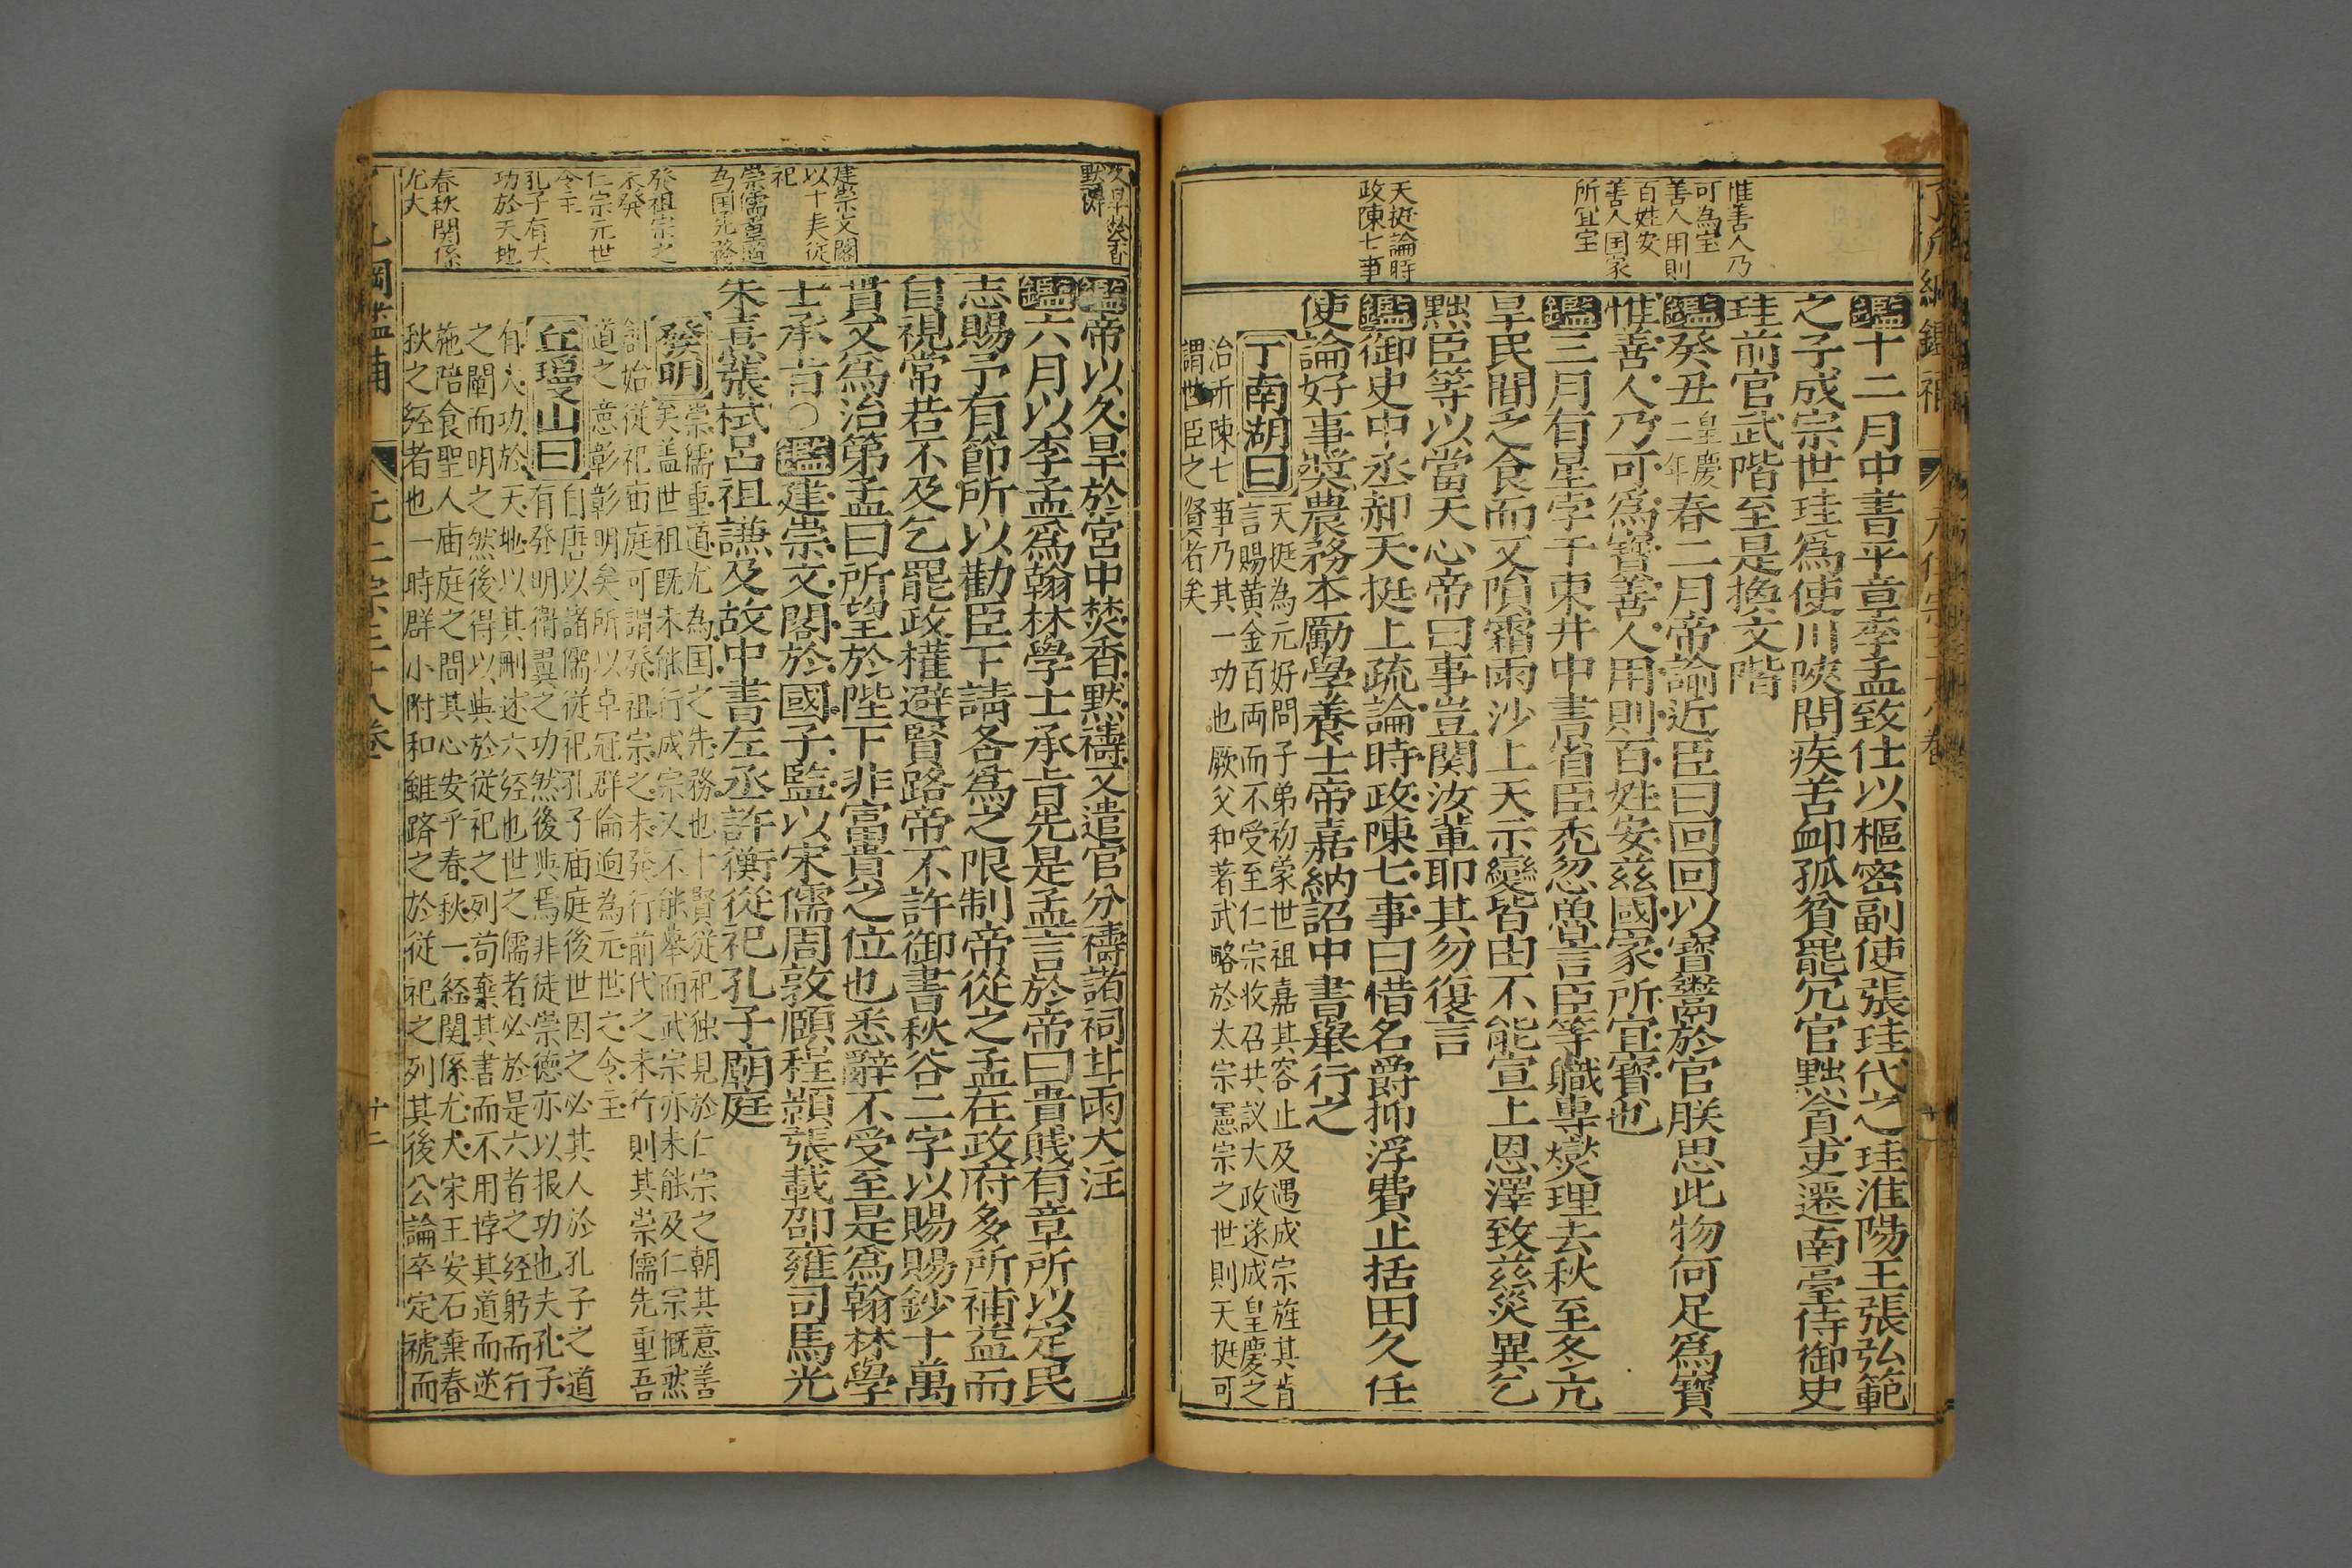 惟善人乃
可為宝
善人用則
百姓安
善人国家
所宜宝
天挺論時
政陳七事
鑑十二月中書平章李孟致仕以樞密副使張珪代之珪淮陽王張弘範
之子成宗世珪爲使川陝問疾苦卹孤貧罷冗官黜貪吏遷南臺侍御史
珪前官武階至是換文階
鑑癸丑皇慶二年春二月帝諭近臣曰回回以寶鬻於官朕思此物何足爲寶
惟善人乃可爲寶善人用則百姓安茲國家所宜寶也
鑑三月有星孛于東井中書省臣禿忽魯言臣等職專燮理去秋至冬亢
旱民間乏食而又隕霜雨沙上天示變皆由不能宣上恩澤致茲災異乞
黜臣等以當天心帝曰事豈関汝輩耶其勿復言
鑑御史中丞郝天挺上疏論時政陳七事曰惜名爵抑浮費止括田久任
使論好事奬農務本勵學養士帝嘉納詔中書舉行之
丁南湖曰天挺為元好問子弟初蒙世祖嘉其容止及遇成宗旌其肯
言賜黄金百両而不受至仁宗收召共议大政遂成皇慶之
治所陳七事乃其一功也厥父和著武略於太宗憲宗之世則天挺可
謂世臣之賢者矣
久旱焚香
默禱
建崇文閣
以十㐮従
祀
崇儒重道
為国先務
発祖宗之
未発
仁宗元世
令主
孔子有大
功於天地
春秋関係
尤大
鑑帝以久旱於宮中焚香默禱又遣官分禱諸祠甘雨大注
鑑六月以李孟爲翰林學士承旨先是孟言於帝曰貴賤有章所以定民
志賜予有節所以勸臣下請各爲之限制帝從之孟在政府多所補益而
自視常若不及乞罷政權避賢路帝不許御書秋谷二字以賜賜鈔十萬
貫又爲治第孟曰所望於陛下非富貴之位也悉辭不受至是爲翰林學
士承旨○鑑建崇文閣於國子監以宋儒周敦頤程顥張載邵雍司馬光
朱熹張栻呂祖謙及故中書左丞許衡從祀孔子廟庭
發明崇儒重道尤為国之先務也十賢従祀独見於仁宗之朝其意善
矣盖世祖既未能行成宗又不能舉而武宗亦未能及仁宗慨然
創始従祀庙庭可謂発祖宗之未発行前代之未行則其崇儒先重吾
道之意彰彰明矣所以卓冠群倫逈為元世之令主
丘瓊山曰自唐以諸儒従祀孔子庙庭後世因之必其人於孔子之道
有發明衛翼之功然後與焉非徒崇徳亦以报功也夫孔子
有大功於天地以其刪述六经也世之儒者必於是六者之经躬而行
之闡而明之然後得以與於従祀之列苟棄其書而不用悖其道而逆
施陪食聖人庙庭之間其心安乎春秋一経関係尤大宋王安石棄春
秋之经者也一時群小附和雖躋之於従祀之列其後公論卒定禠而